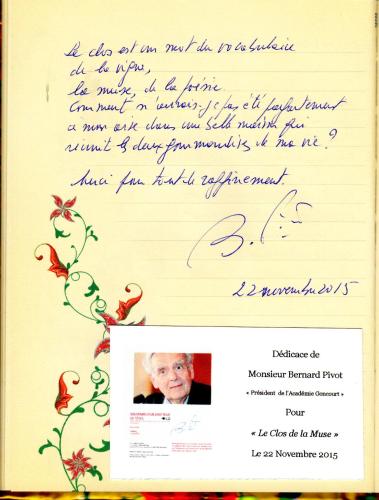 Le clos est un mot du vocabulaire
de la vigne,
la muse, de la poésie.
Comment n'aurais-je pas été parfaitement
à mon aise dans une belle maison qui
réunit les deux gourmandises de ma vie ?
Merci pour tout le raffinement.
B. P
22 novembre 2015
Dédicace de
Monsieur Bernard Pivot
« Président de l'Académie Goncourt »
Pour
« Le Clos de la Muse »
Le 22 Novembre 2015